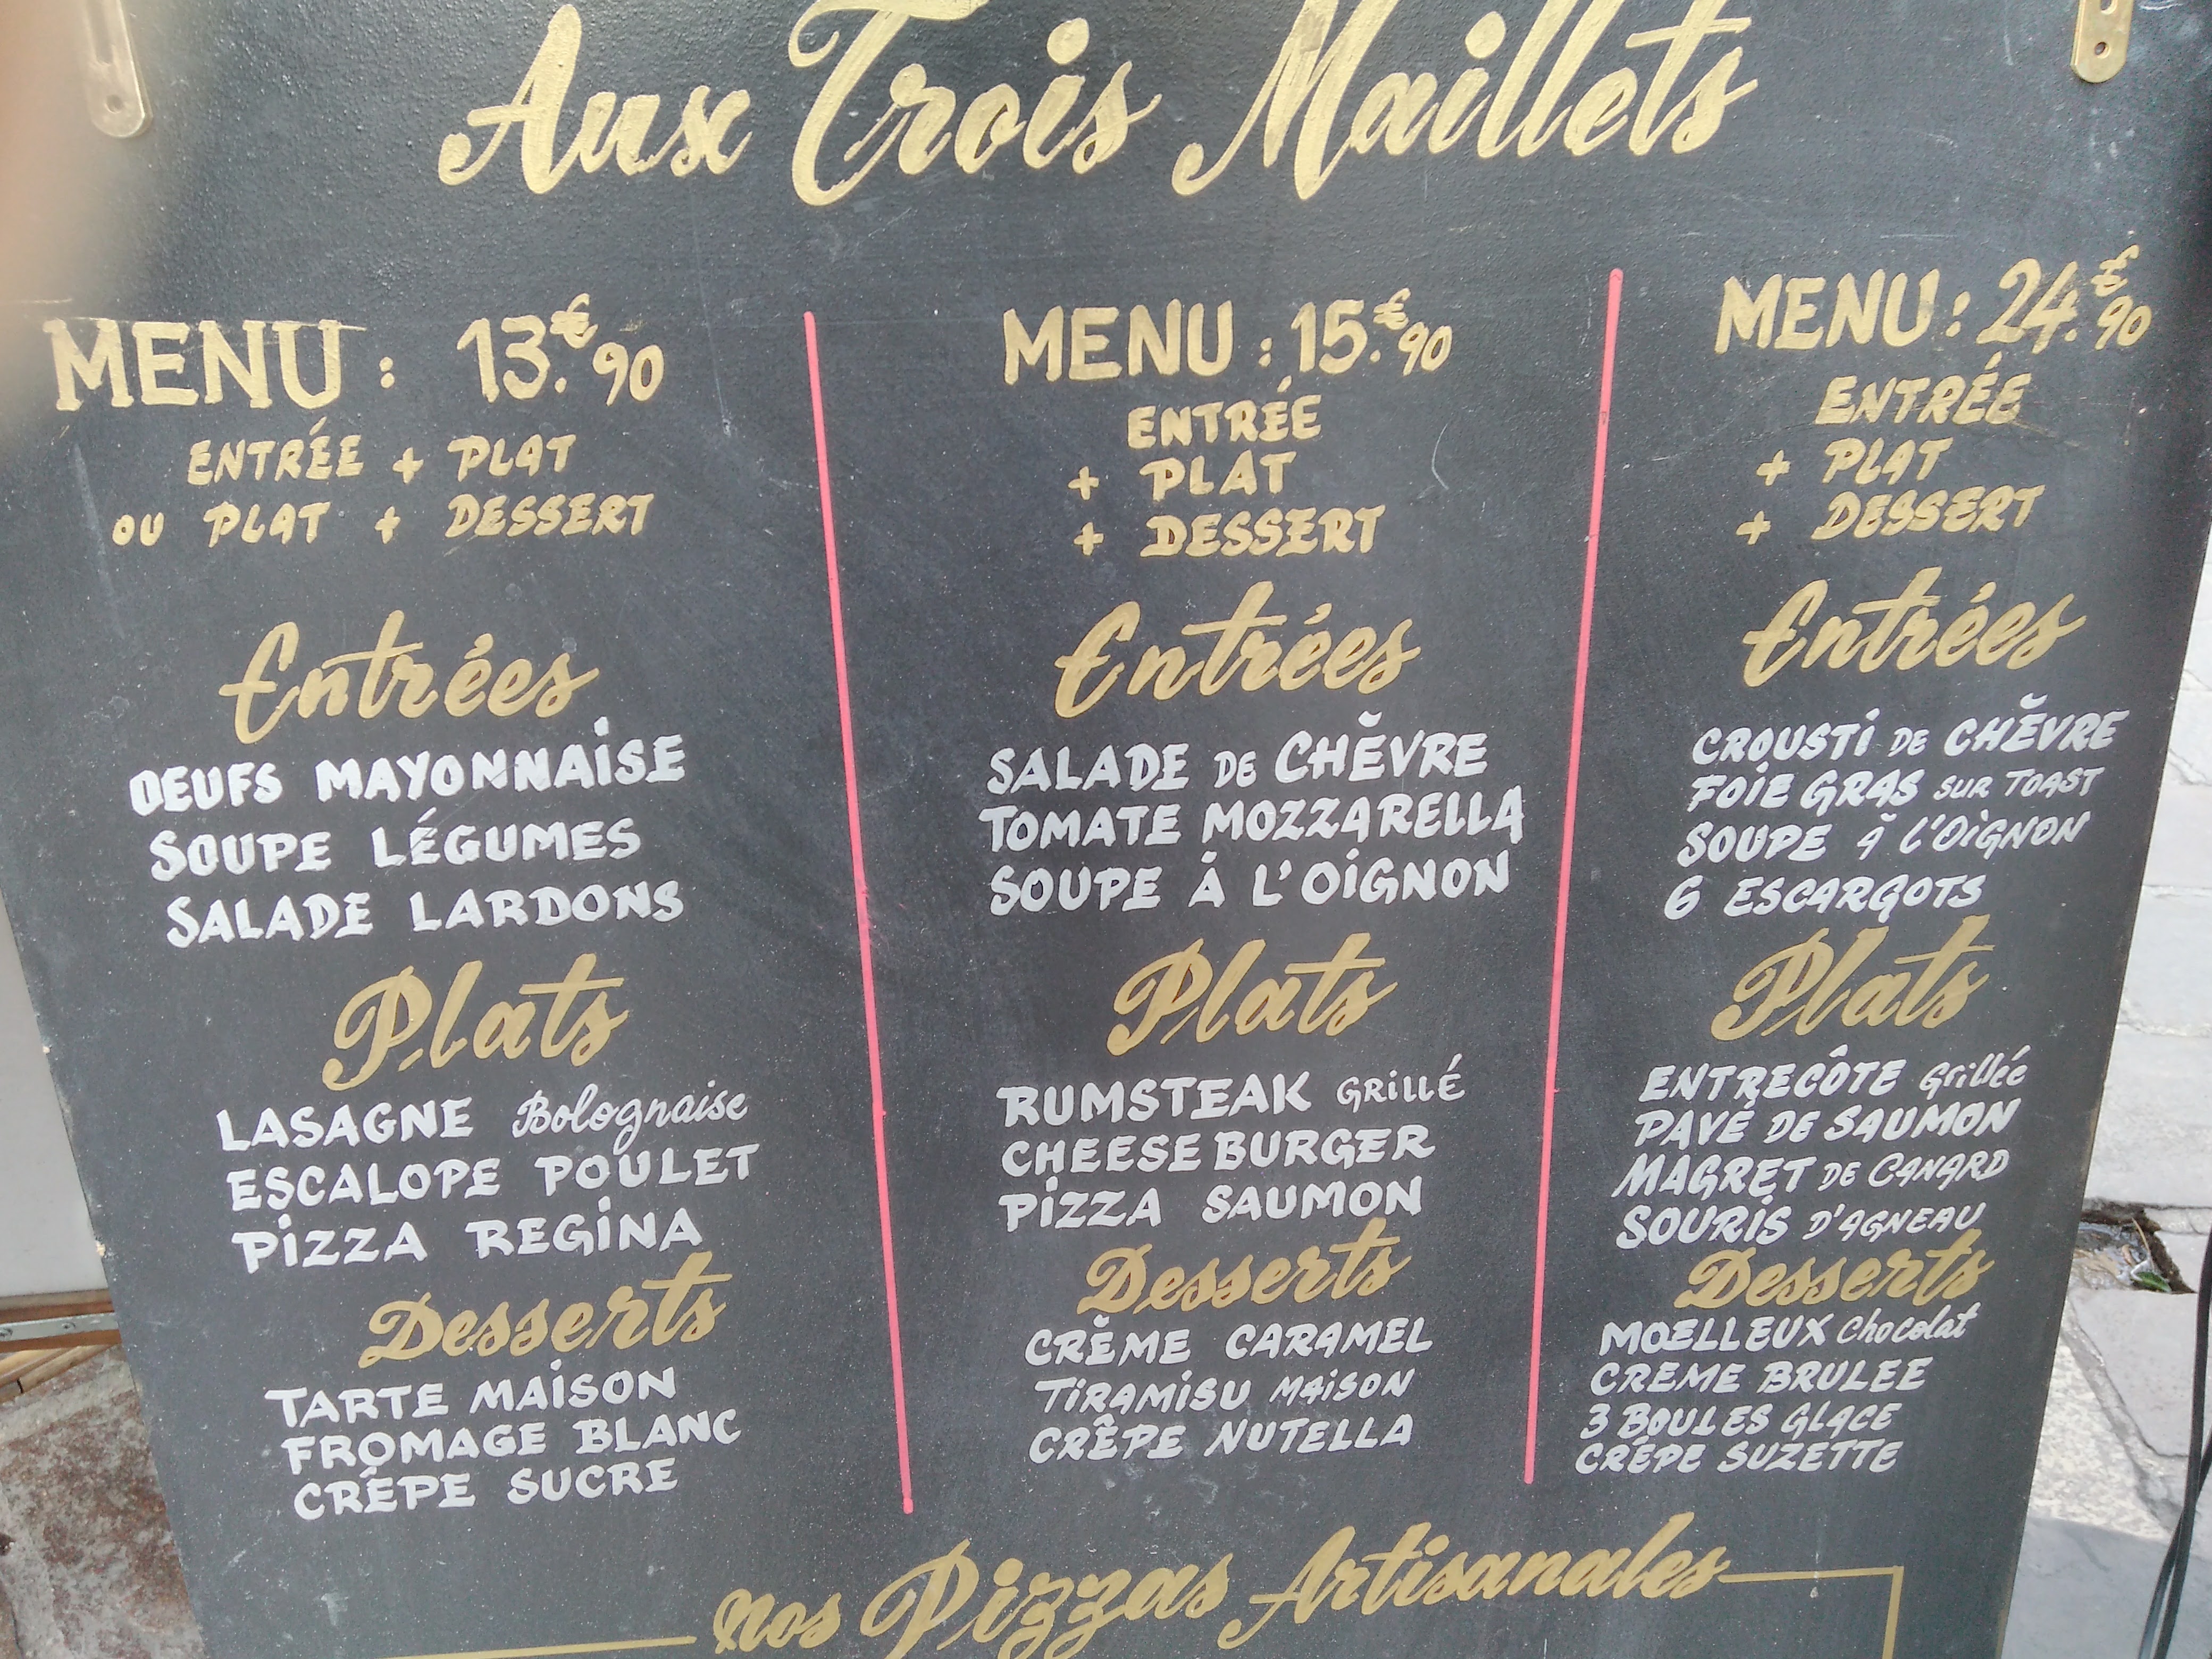 Aux Trois Maillets
MENU : 13.€90
ENTRÉE + PLAT
OU PLAT + DESSERT
Entrées
OEUFS MAYONNAISE
SOUPE LÉGUMES
SALADE LARDONS
Plats
LASAGNE Bolognaise
ESCALOPE POULET
PIZZA REGINA
Desserts
TARTE MAISON
FROMAGE BLANC
CRÊPE SUCRE
MENU : 15.€90
ENTRÉE
+ PLAT
+ DESSERT
Entrées
SALADE DE CHÈVRE
TOMATE MOZZARELLA
SOUPE À L'OIGNON
Plats
RUMSTEAK GRILLÉ
CHEESE BURGER
PIZZA SAUMON
Desserts
CRÈME CARAMEL
TIRAMISU MAISON
CRÊPE NUTELLA
MENU : 24.€90
ENTRÉE
+ PLAT
+ DESSERT
Entrées
CROUSTI DE CHÈVRE
FOIE GRAS SUR TOAST
SOUPE À L'OIGNON
6 ESCARGOTS
Plats
ENTRECÔTE Grillée
PAVÉ DE SAUMON
MAGRET DE CANARD
SOURIS D'AGNEAU
Desserts
MOELLEUX Chocolat
CREME BRULEE
3 BOULES GLACE
CRÊPE SUZETTE
Nos Pizzas Artisanales